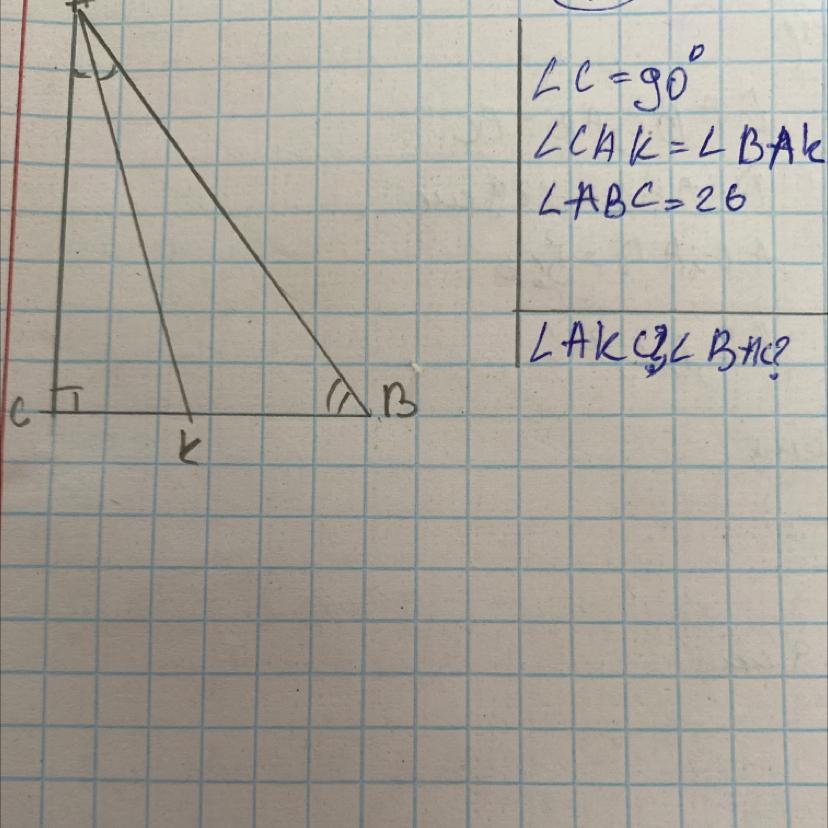 A
∠C=90°
∠CAK=∠BAK
∠ABC=26
∠AKC?,∠BAC?
C
B
K